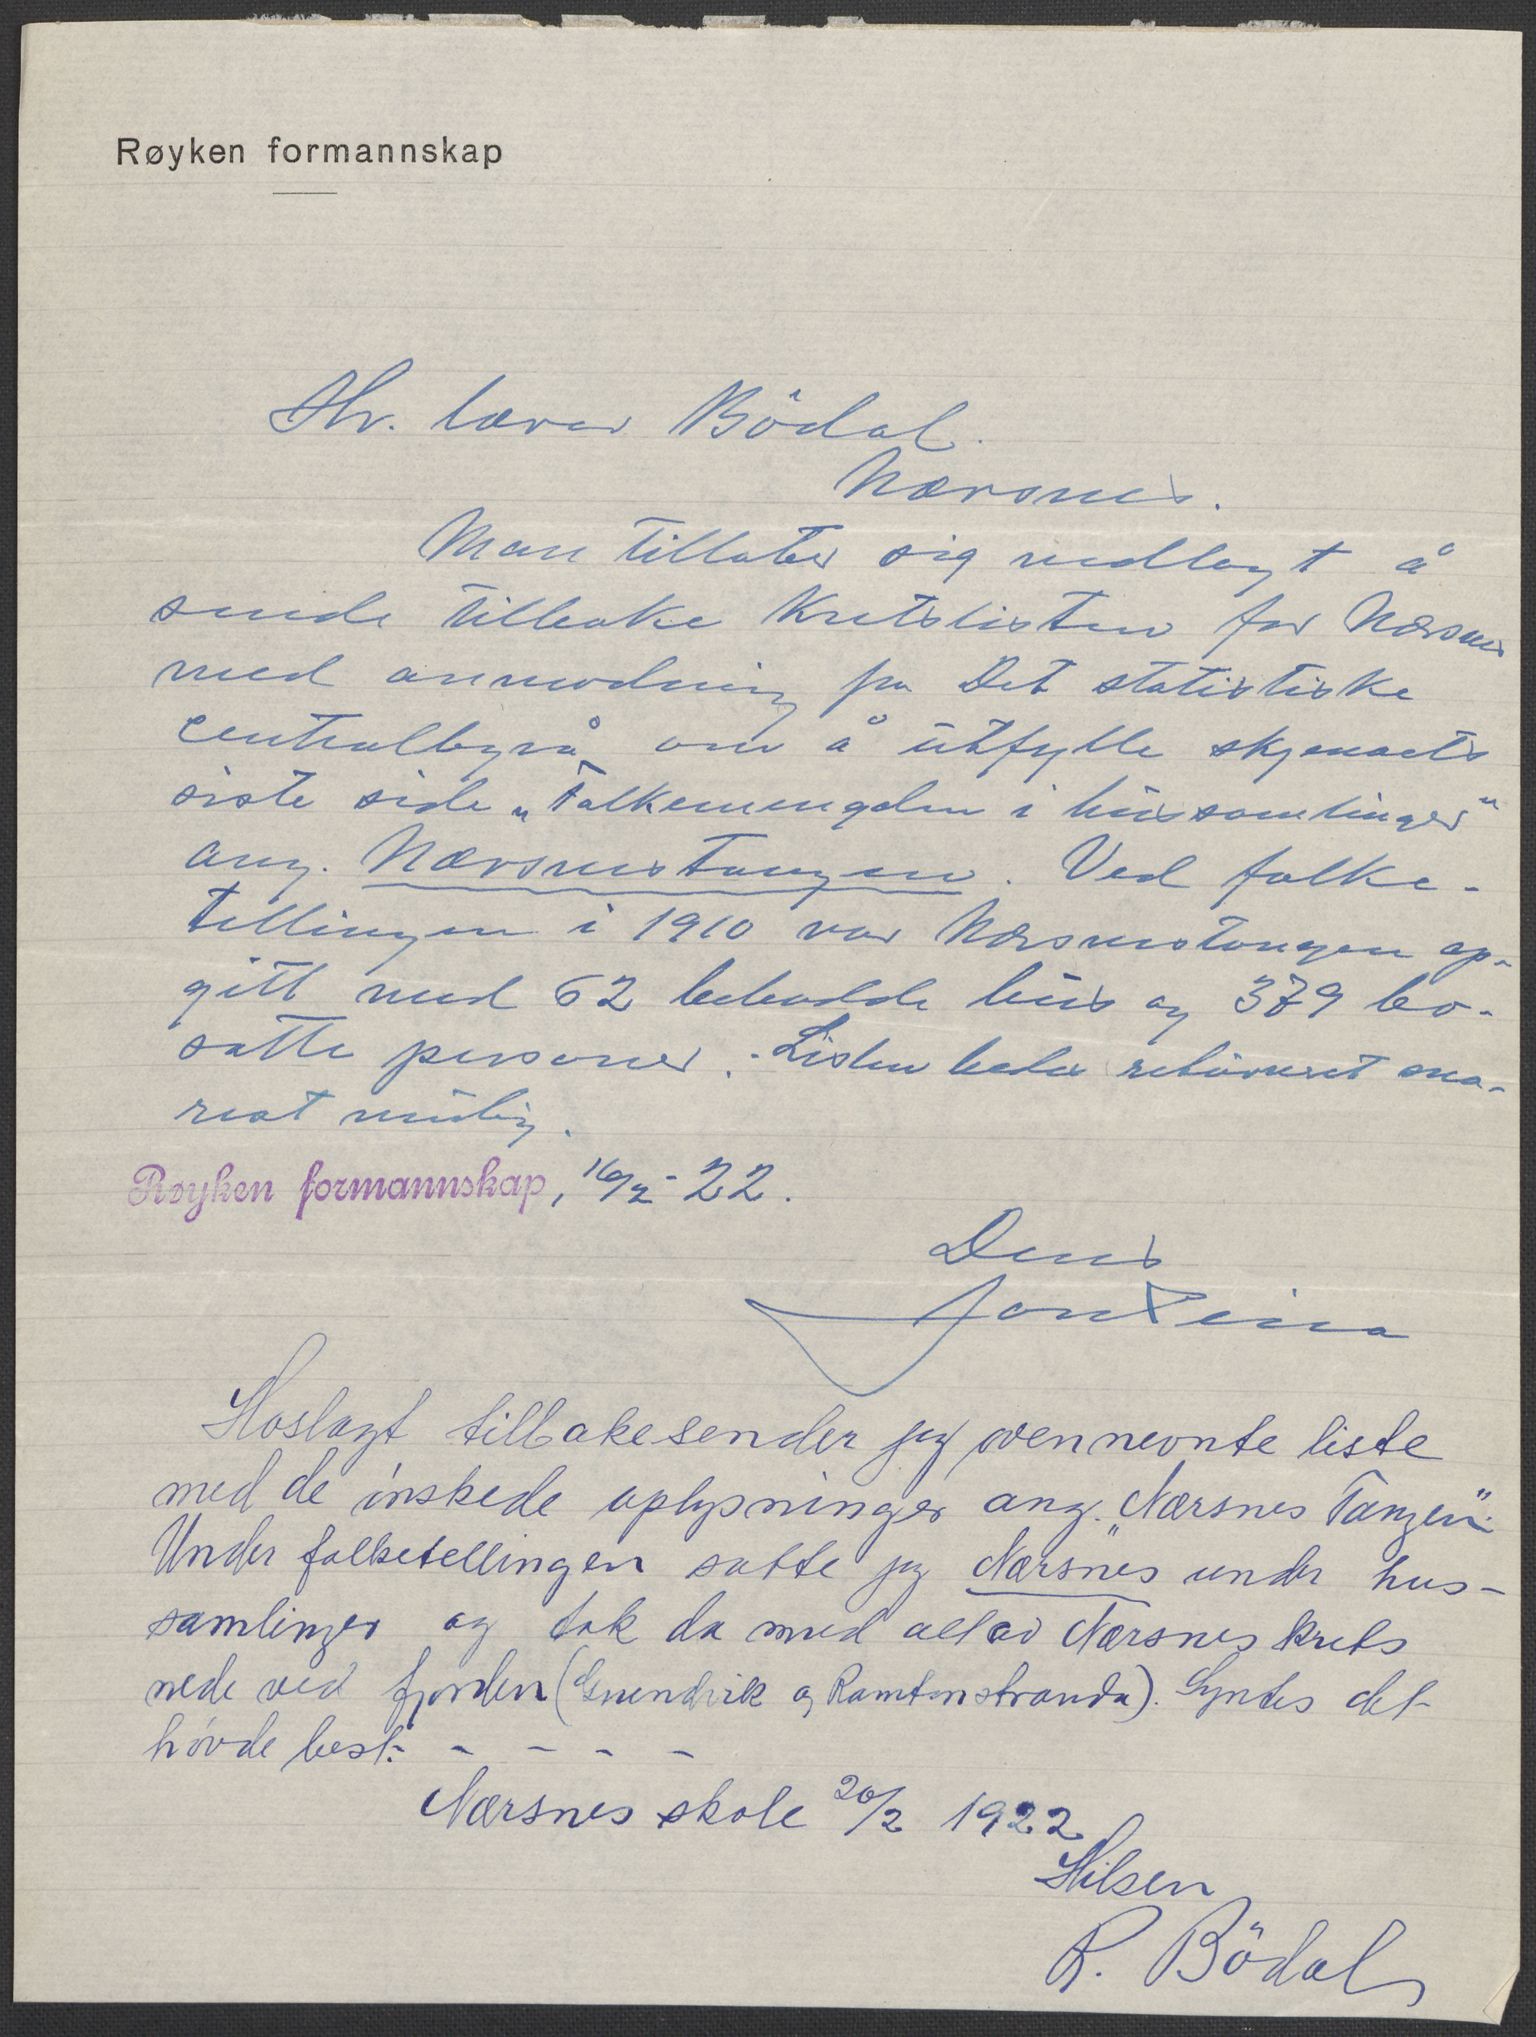 Røyken formannskap
Hr. lærer Bödal.
Nærsnes.
Man tillater sig vedlagt å
sende tilbake kretslisten for Nærsnes
med anmodning fra Det statistiske
centralbyrå om å utfylle skjemaets
siste side „Folkemengden i hussamlinger"
ang. Nærsnestangen. Ved folke-
tellingen i 1910 var Nærsnestangen op-
gitt med 62 bebodde hus og 379 bo-
satte personer. - Listen bedes returnert sna-
rest mulig.
Røyken formannskap, 16/2 - 22.
Deres
Hoslagt tilbakesender jeg ovennevnte liste
med de ønskede oplysninger ang. „Nærsnes Tangen".
Under folketellingen satte jeg „Nærsnes" under hus-
samlinger og tok da med all av Nærsnes krets
nede ved fjorden (Grundvik og Ramtonstranda). Syntes det
høvde best. - - - - -
Nærsnes skole 20/2 1922
Hilsen
R. Bödal